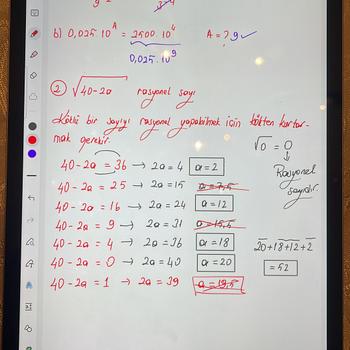 b) 0,025.10^A = 2500.10^4 A = ? 9 ✓
0,025.10^9
② √40-2a rasyonel sayı
Köklü bir sayıyı rasyonel yapabilmek için kökten kurtar-
mak gerekir.
40-2a = 36 → 2a = 4 a = 2
40-2a = 25 → 2a = 15 a = 7,5
40-2a = 16 → 2a = 24 a = 12
40-2a = 9 → 2a = 31 a = 15,5
40-2a = 4 → 2a = 36 a = 18
40-2a = 0 → 2a = 40 a = 20
40-2a = 1 → 2a = 39 a = 19,5
√0 = 0
↓
Rasyonel
sayıdır.
20+18+12+2
= 52